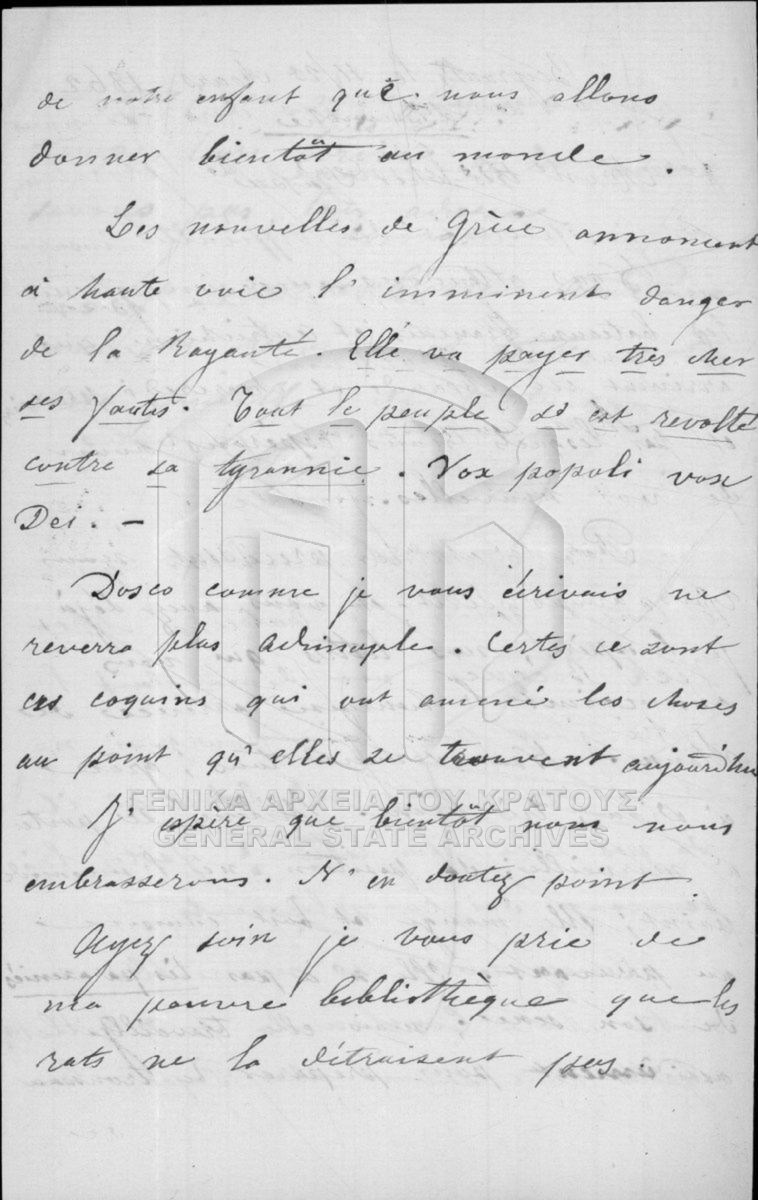 de notre enfant que nous allons
donner bientôt au monde.
Les nouvelles de Grèce annoncent
à haute voie l'imminent danger
de la Royauté. Elle va payer très cher
ses fautes. Tout le peuple s'est revolté
contre sa tyrannie. Vox populi vox
Dei. —
comme je vous écrivais ne
reverra plus. Certes ce sont
ces coquins qui ont amené les choses
au point qu'elles se trouvent aujourd'hui
J'espère que bientôt nous nous
embrasserons. N'en doutez point
Ayez soin je vous prie de
ma pauvre bibliothèque que les
rats ne la détruisent pas
ΓΕΝΙΚΑ ΑΡΧΕΙΑ ΤΟΥ ΚΡΑΤΟΥΣ
GENERAL STATE ARCHIVES